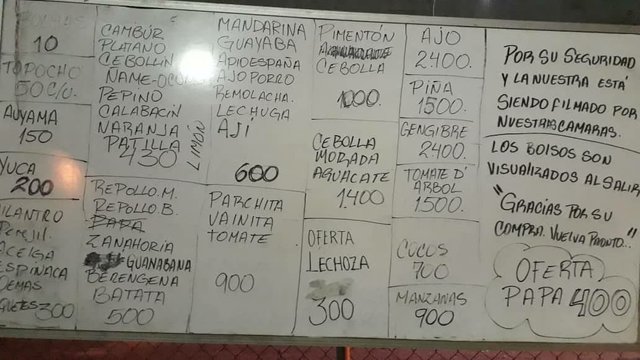 10
TOPOCHO
50 C/U.
AUYAMA
150
YUCA
200
PEREJIL
ACELGA
ESPINACA
DEMAS
300
CAMBÚR
PLATANO
CEBOLLIN
NAME-OCUMO
PEPINO
CALABACIN
NARANJA
PATILLA
LIMÓN
430
REPOLLO.M.
REPOLLO.B.
PAPA
ZANAHORIA
GUANABANA
BERENGENA
BATATA
500
MANDARINA
GUAYABA
APIOESPAÑA
AJOPORRO
REMOLACHA.
LECHUGA
AJÍ
600
PARCHITA
VAINITA
TOMATE
900
PIMENTÓN
CEBOLLA
1000.
CEBOLLA
MORADA
AGUACATE
1.400
OFERTA
LECHOZA
300
AJO
2400.
PIÑA
1500.
GENGIBRE
2400.
TOMATE D'
ARBOL
1500.
COCOS
700
MANZANAS
900
POR SU SEGURIDAD
Y LA NUESTRA ESTÁ
SIENDO FILMADO POR
NUESTRAS CAMARAS.
LOS BOLSOS SON
VISUALIZADOS AL SALIR
"GRACIAS POR SU
COMPRA. VUELVA PRONTO.."
OFERTA
PAPA 400